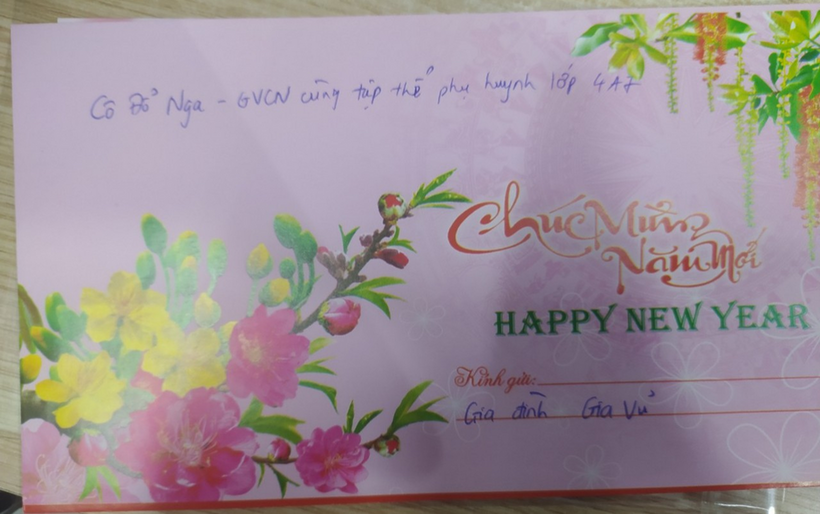 Cô Đỗ Nga - GVCN cùng tập thể phụ huynh lớp 4A7
Chúc Mừng
Năm Mới
HAPPY NEW YEAR
Kính gửi:
Gia đình Gia Vũ